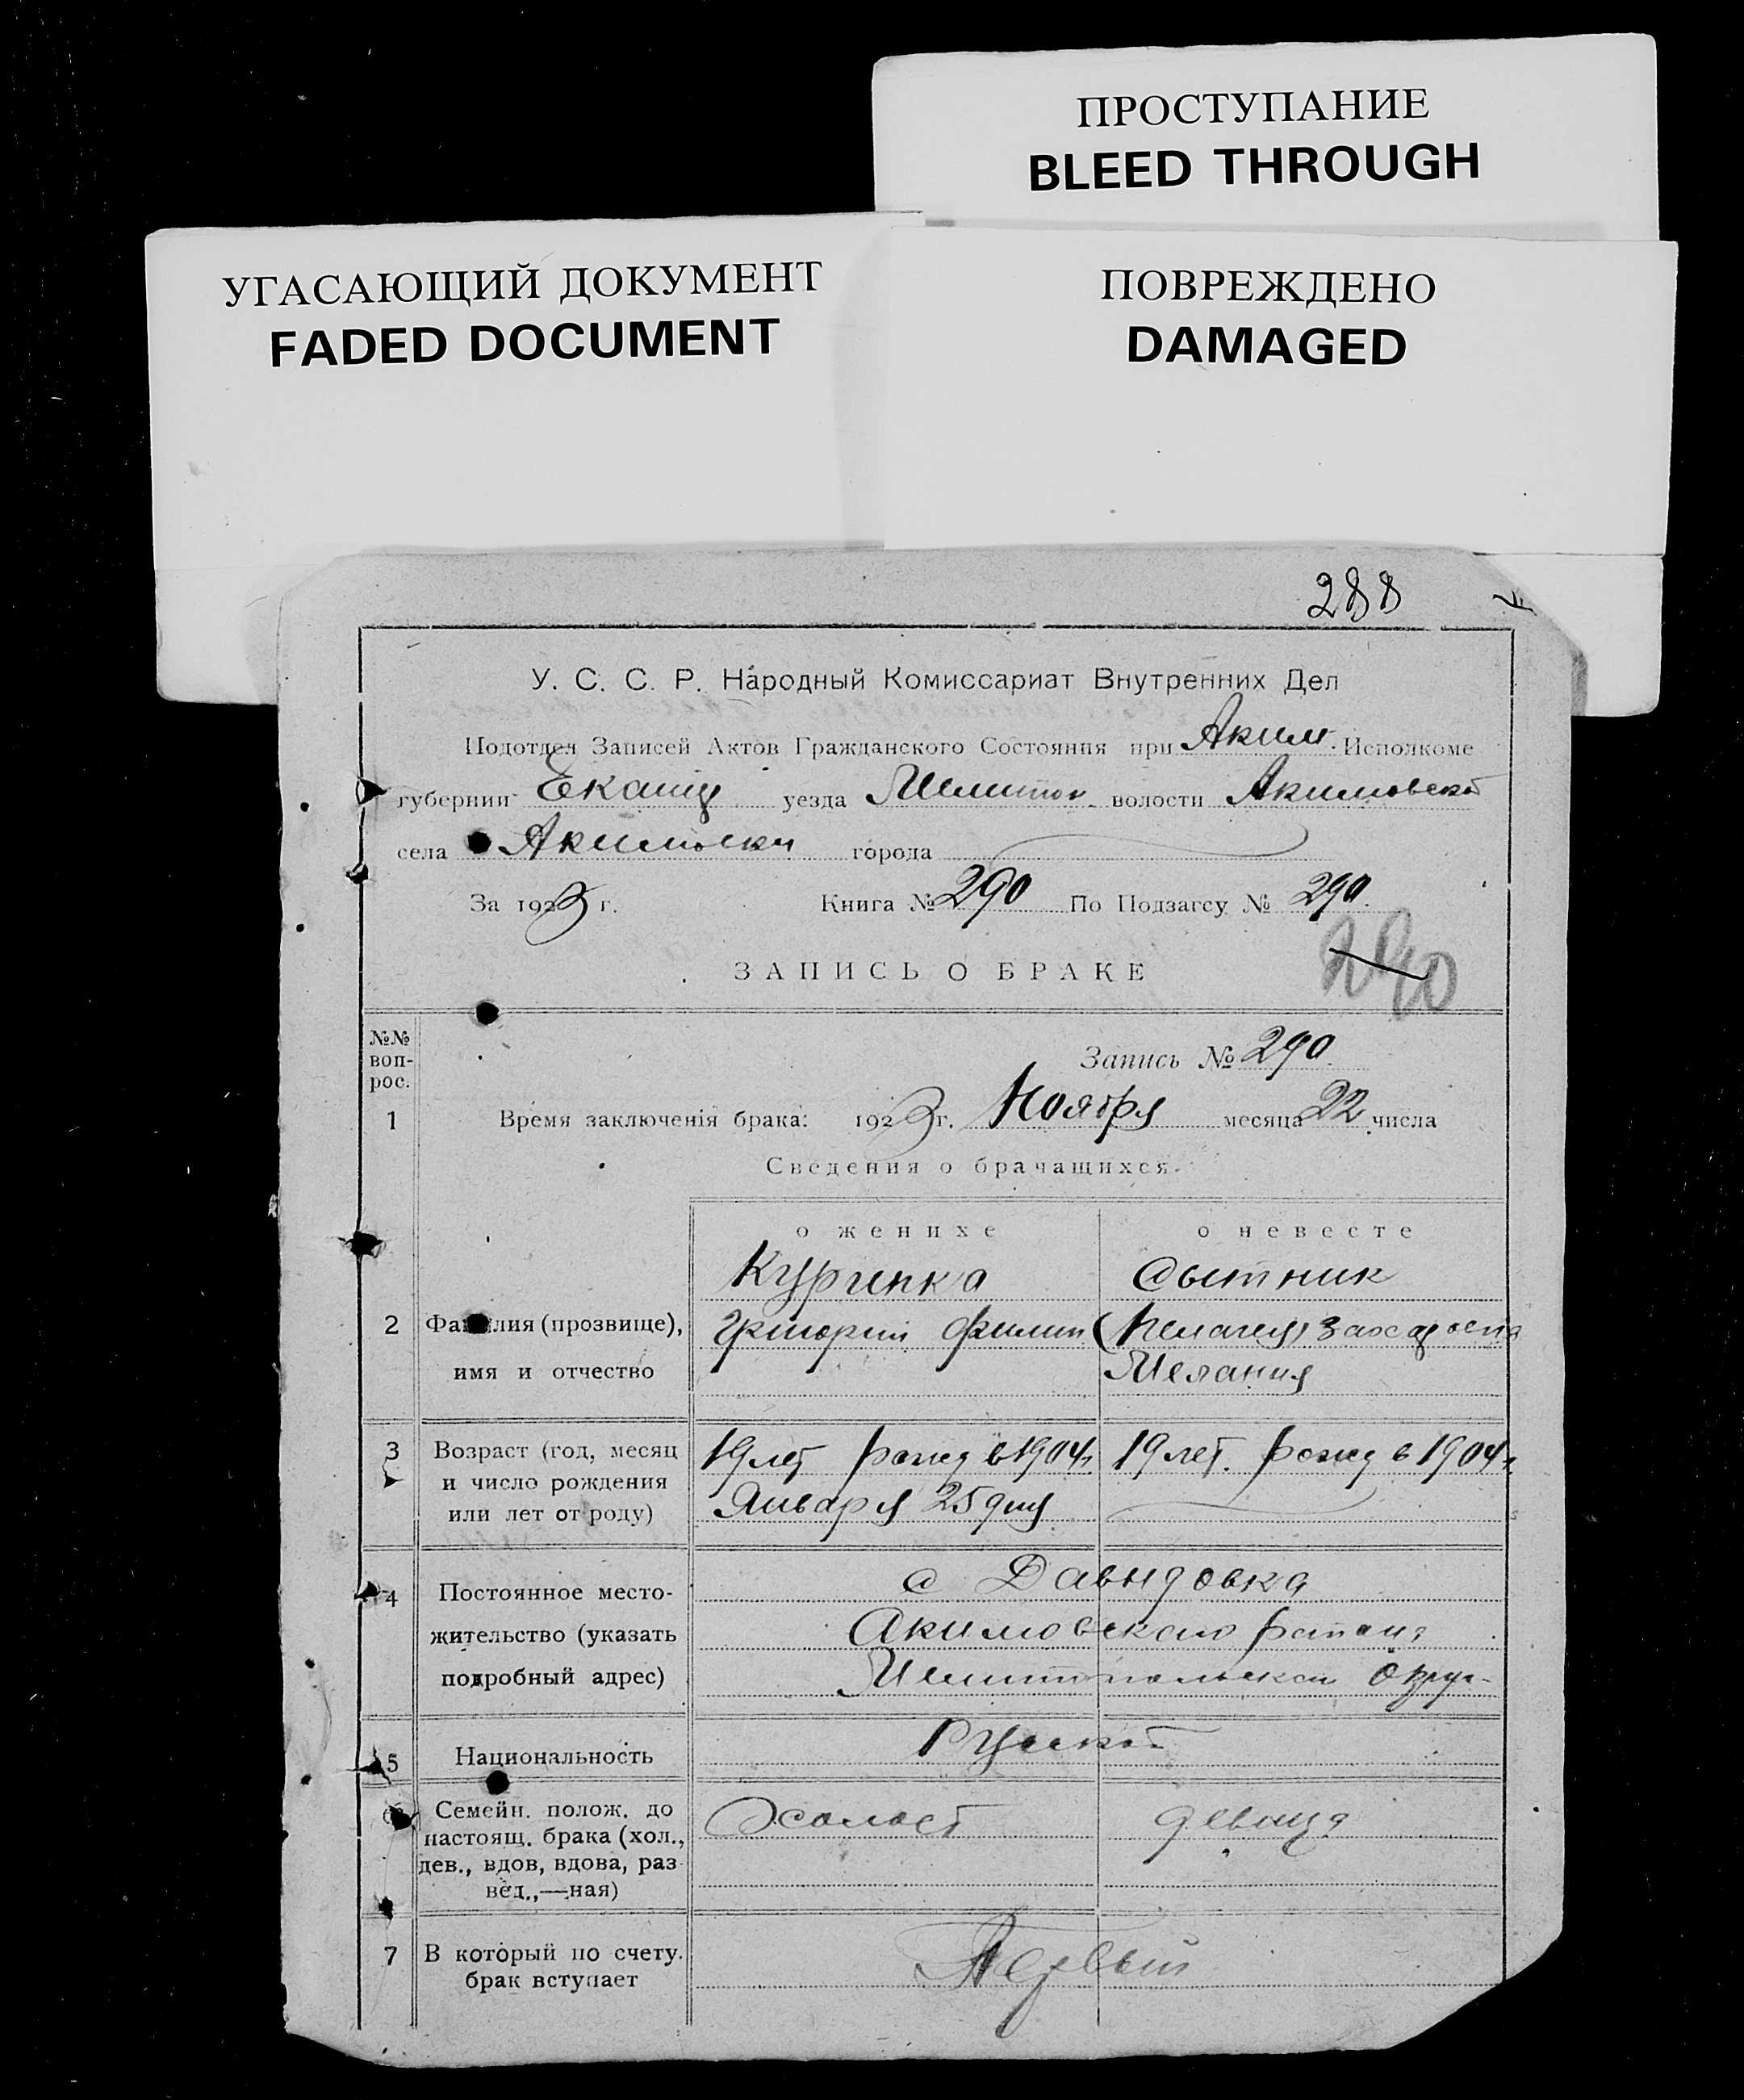 ПРОСТУПАНИЕ
BLEED THROUGH
УГАСАЮЩИЙ ДОКУМЕНТ
FADED DOCUMENT
ПОВРЕЖДЕНО
DAMAGED
288
У. С. С. Р. Народный Комиссариат Внутренних Дел
Подотдел Записей Актов Гражданского Состояния при Аким. Исполкоме
губернии Екатер уезда Мелитоп. волости Акимовской
села Акимовки города
За 1923 г. Книга № 290 По Подзагсу № 290.
290
ЗАПИСЬ О БРАКЕ
№№ воп-рос.
Запись № 290.
1 Время заключенія брака: 1923 г. Ноября месяца 22 числа
Сведения о брачащихся.
о женихе о невесте
Курипка Сытник
2 Фамилия (прозвище), Григорий Филип (Пелагея) Захаровна
имя и отчество Мелания
3 Возраст (год, месяц 19 лет рожд в 1904 г. 19 лет. рожд в 1904 г.
и число рождения Января 25 дня
или лет от роду)
4 Постоянное место- с Давыдовка
жительство (указать Акимовского района
подробный адрес) Мелитопольской Округ-
5 Национальность Руской
6 Семейн. полож. до Холост девица
настоящ. брака (хол.,
дев., вдов, вдова, раз-
вед.,—ная)
7 В который по счету. Первый
брак вступает